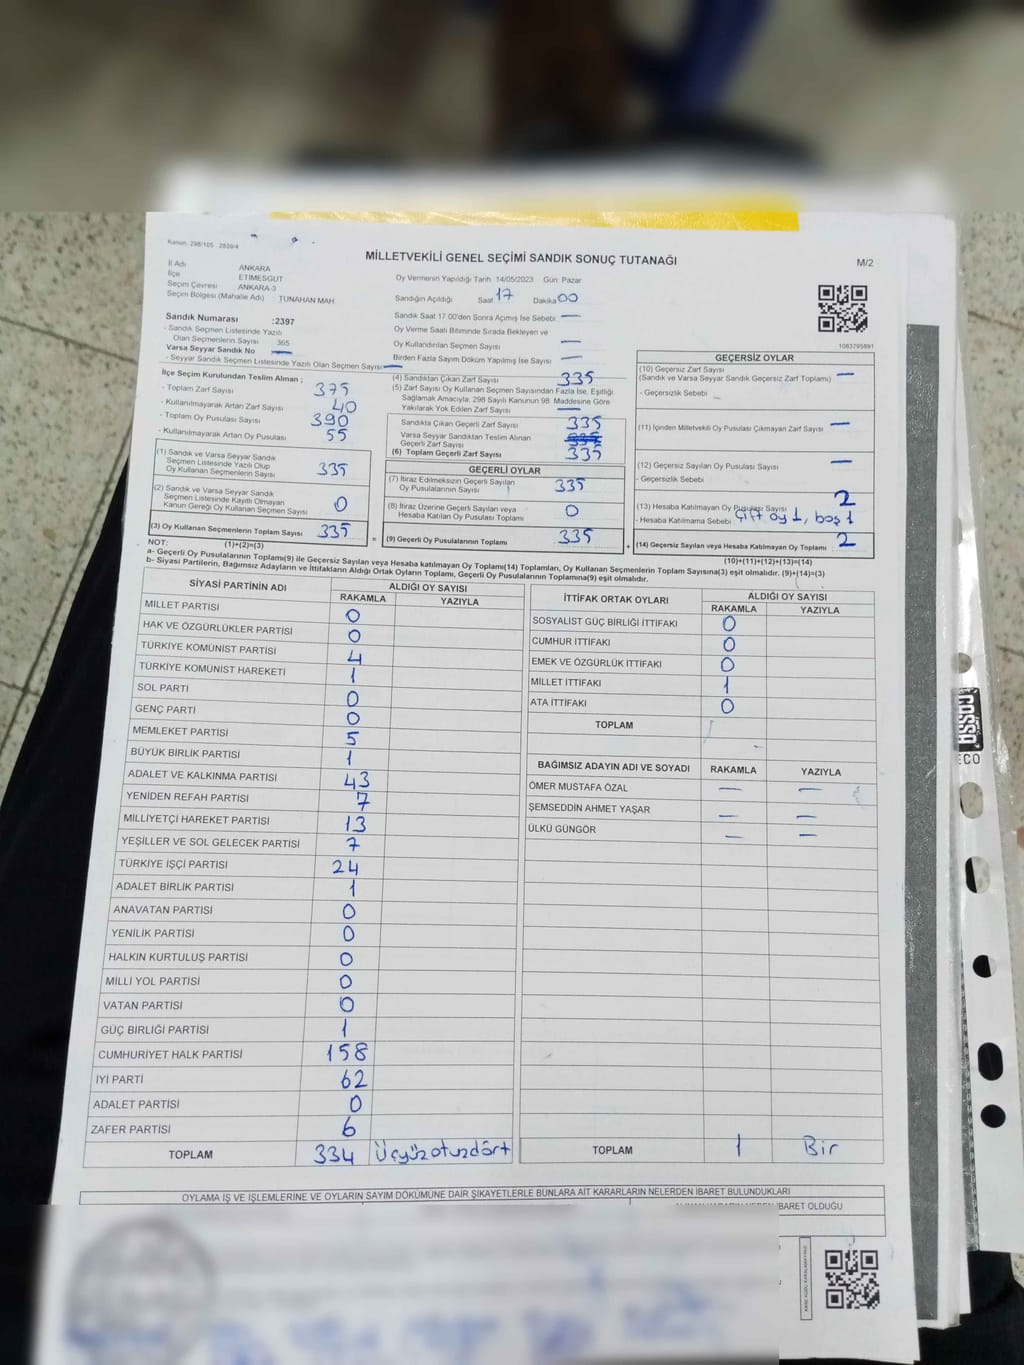 Kanun: 298/105 , 2839/4
MİLLETVEKİLİ GENEL SEÇİMİ SANDIK SONUÇ TUTANAĞI
M/2
İl Adı ANKARA
İlçe ETİMESGUT
Seçim Çevresi ANKARA-3
Seçim Bölgesi (Mahalle Adı) TUNAHAN MAH
Sandık Numarası :2397
- Sandık Seçmen Listesinde Yazılı
Olan Seçmenlerin Sayısı 365
Varsa Seyyar Sandık No —
- Seyyar Sandık Seçmen Listesinde Yazılı Olan Seçmen Sayısı —
Oy Vermenin Yapıldığı Tarih 14/05/2023 Gün: Pazar
Sandığın Açıldığı Saat 17 Dakika 00
Sandık Saat 17 00'den Sonra Açımış İse Sebebi —
Oy Verme Saati Bitiminde Sırada Bekleyen ve
Oy Kullandırılan Seçmen Sayısı —
Birden Fazla Sayım Döküm Yapılmış İse Sayısı —
1083795891
İlçe Seçim Kurulundan Teslim Alınan ;
- Toplam Zarf Sayısı 375
- Kullanılmayarak Artan Zarf Sayısı 40
- Toplam Oy Pusulası Sayısı 390
- Kullanılmayarak Artan Oy Pusulası 55
(1) Sandık ve Varsa Seyyar Sandık
Seçmen Listesinde Yazılı Olup
Oy Kullanan Seçmenlerin Sayısı 335
(2) Sandık ve Varsa Seyyar Sandık
Seçmen Listesinde Kayıtlı Olmayan
Kanun Gereği Oy Kullanan Seçmen Sayısı 0
(3) Oy Kullanan Seçmenlerin Toplam Sayısı 335
(4) Sandıktan Çıkan Zarf Sayısı 335
(5) Zarf Sayısı Oy Kullanan Seçmen Sayısından Fazla İse, Eşitliği
Sağlamak Amacıyla, 298 Sayılı Kanunun 98 Maddesine Göre
Yakılarak Yok Edilen Zarf Sayısı —
Sandıkta Çıkan Geçerli Zarf Sayısı 335
Varsa Seyyar Sandıktan Teslim Alınan
Geçerli Zarf Sayısı
(6) Toplam Geçerli Zarf Sayısı 335
GEÇERLİ OYLAR
(7) İtiraz Edilmeksizin Geçerli Sayılan
Oy Pusulalarının Sayısı 335
(8) İtiraz Üzerine Geçerli Sayılan veya
Hesaba Katılan Oy Pusulası Toplamı 0
= (9) Geçerli Oy Pusulalarının Toplamı 335
GEÇERSİZ OYLAR
(10) Geçersiz Zarf Sayısı
(Sandık ve Varsa Seyyar Sandık Geçersiz Zarf Toplamı) —
- Geçersizlik Sebebi
(11) İçinden Milletvekili Oy Pusulası Çıkmayan Zarf Sayısı —
(12) Geçersiz Sayılan Oy Pusulası Sayısı —
- Geçersizlik Sebebi
(13) Hesaba Katılmayan Oy Pusulası Sayısı 2
- Hesaba Katılmama Sebebi Çift oy 1, boş 1
+ (14) Geçersiz Sayılan veya Hesaba Katılmayan Oy Toplamı 2
NOT: (1)+(2)=(3)
(10)+(11)+(12)+(13)=(14)
a- Geçerli Oy Pusulalarının Toplamı(9) ile Geçersiz Sayılan veya Hesaba katılmayan Oy Toplamı(14) Toplamları, Oy Kullanan Seçmenlerin Toplam Sayısına(3) eşit olmalıdır. (9)+(14)=(3)
b- Siyasi Partilerin, Bağımsız Adayların ve İttifakların Aldığı Ortak Oyların Toplamı, Geçerli Oy Pusulalarının Toplamına(9) eşit olmalıdır.
SİYASİ PARTİNİN ADI ALDIĞI OY SAYISI
RAKAMLA YAZIYLA
MİLLET PARTİSİ 0
HAK VE ÖZGÜRLÜKLER PARTİSİ 0
TÜRKİYE KOMÜNİST PARTİSİ 4
TÜRKİYE KOMÜNİST HAREKETİ 1
SOL PARTİ 0
GENÇ PARTİ 0
MEMLEKET PARTİSİ 5
BÜYÜK BİRLİK PARTİSİ 1
ADALET VE KALKINMA PARTİSİ 43
YENİDEN REFAH PARTİSİ 7
MİLLİYETÇİ HAREKET PARTİSİ 13
YEŞİLLER VE SOL GELECEK PARTİSİ 7
TÜRKİYE İŞÇİ PARTİSİ 24
ADALET BİRLİK PARTİSİ 1
ANAVATAN PARTİSİ 0
YENİLİK PARTİSİ 0
HALKIN KURTULUŞ PARTİSİ 0
MİLLİ YOL PARTİSİ 0
VATAN PARTİSİ 0
GÜÇ BİRLİĞİ PARTİSİ 1
CUMHURİYET HALK PARTİSİ 158
İYİ PARTİ 62
ADALET PARTİSİ 0
ZAFER PARTİSİ 6
TOPLAM 334 Üçyüzotuzdört
İTTİFAK ORTAK OYLARI ALDIĞI OY SAYISI
RAKAMLA YAZIYLA
SOSYALİST GÜÇ BİRLİĞİ İTTİFAKI 0
CUMHUR İTTİFAKI 0
EMEK VE ÖZGÜRLÜK İTTİFAKI 0
MİLLET İTTİFAKI 1
ATA İTTİFAKI 0
TOPLAM
BAĞIMSIZ ADAYIN ADI VE SOYADI RAKAMLA YAZIYLA
ÖMER MUSTAFA ÖZAL — —
ŞEMSEDDİN AHMET YAŞAR — —
ÜLKÜ GÜNGÖR — —
TOPLAM 1 Bir
OYLAMA İŞ VE İŞLEMLERİNE VE OYLARIN SAYIM DÖKÜMÜNE DAİR ŞİKAYETLERLE BUNLARA AİT KARARLARIN NELERDEN İBARET BULUNDUKLARI
İBARET OLDUĞU
GOSSA
ECO